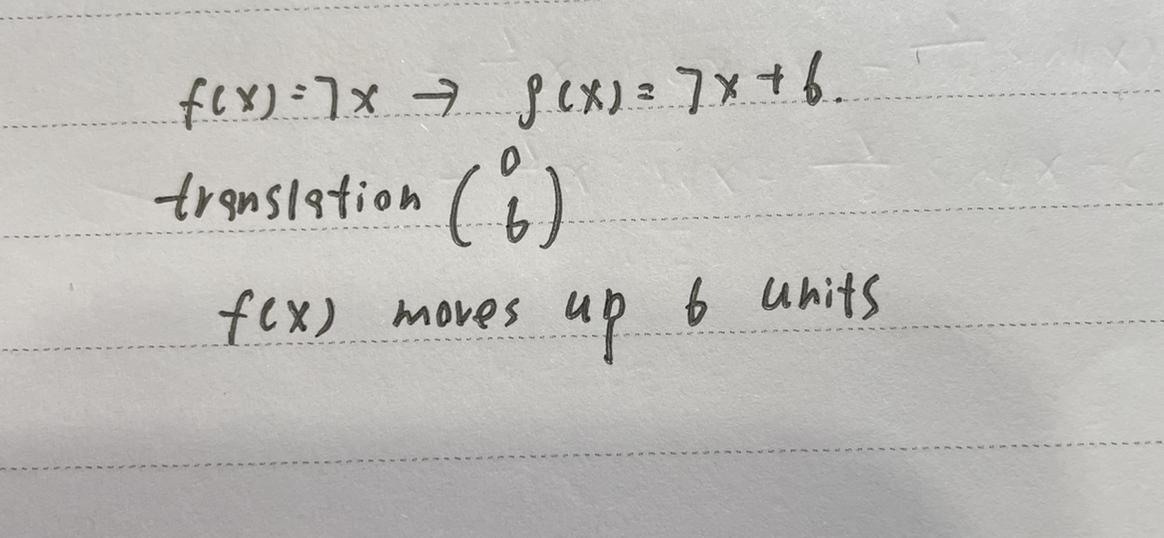 f(x)=7x → g(x)=7x+6.
translation (0 6)
f(x) moves up 6 units